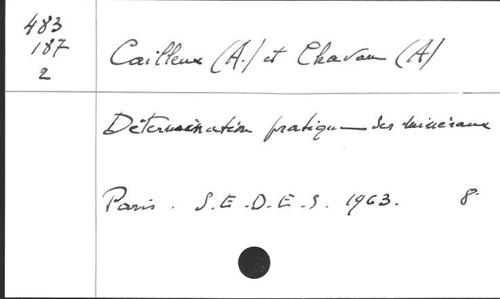 483
187
2
Cailleux (A.) et Chavan (A)
Détermination pratique des minéraux
Paris. S.E.D.E.S. 1963. 8°